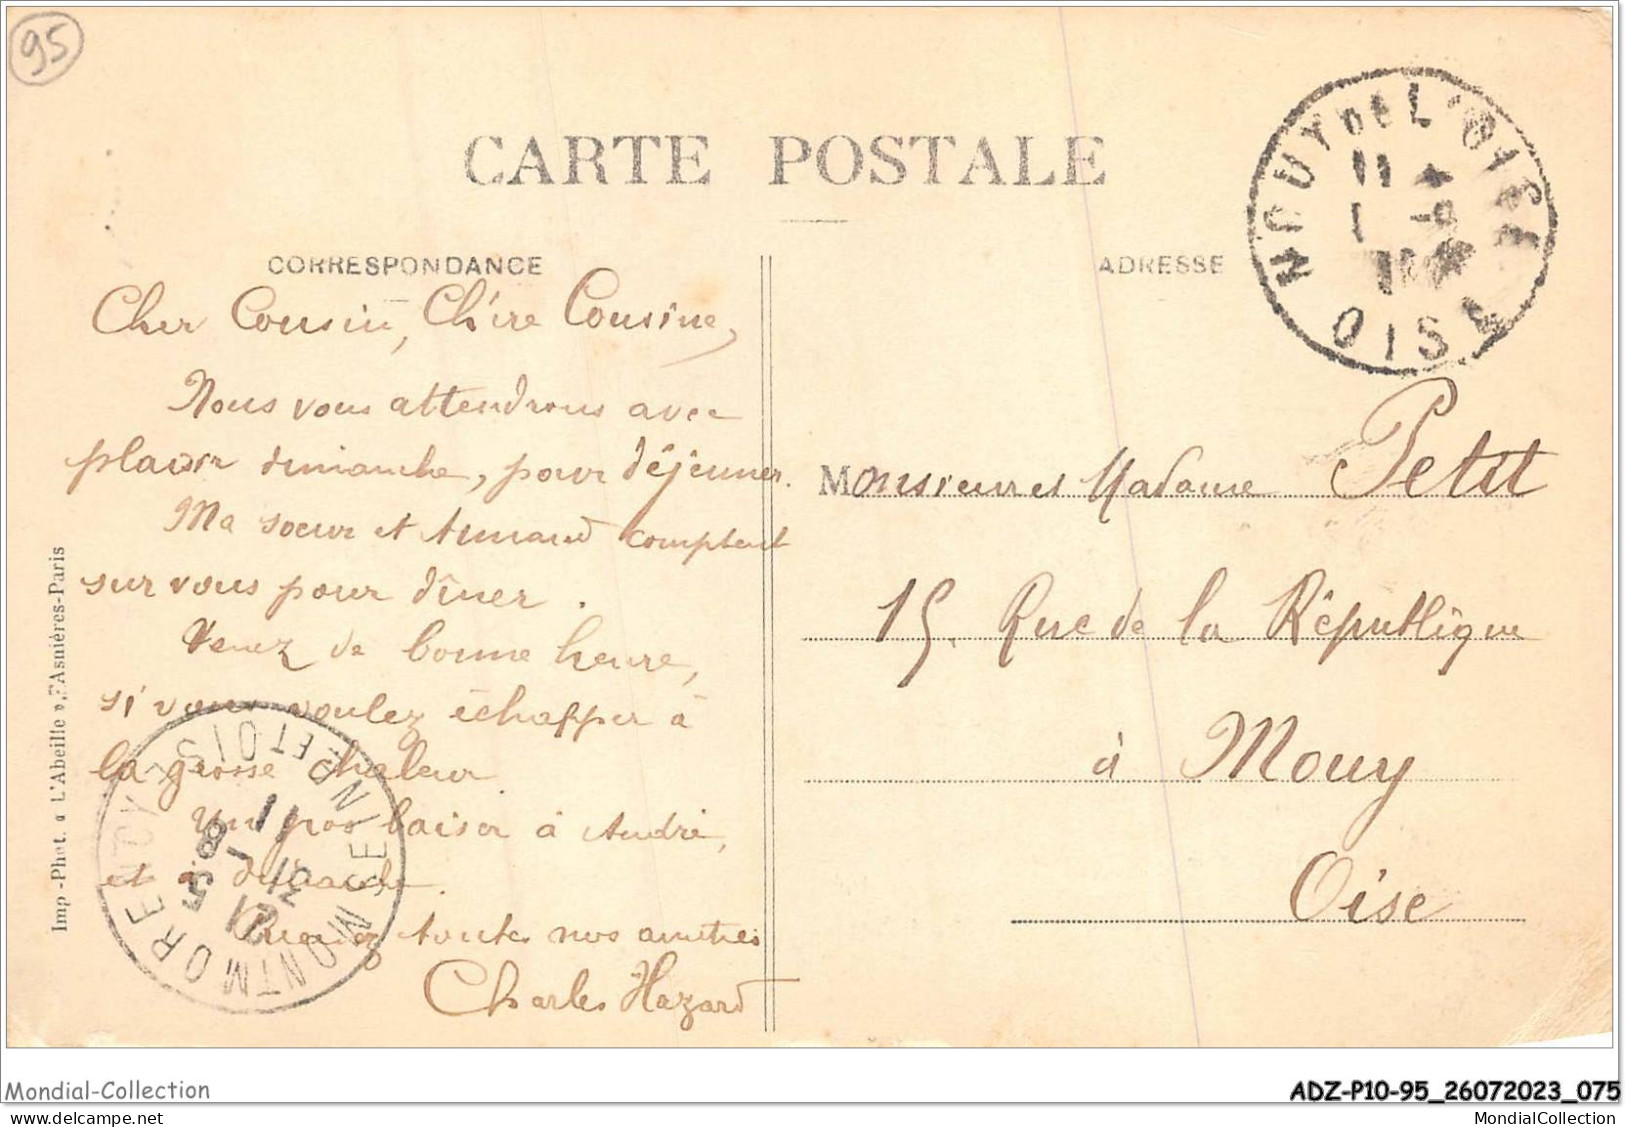 95
CARTE POSTALE
CORRESPONDANCE
ADRESSE
MOUY DE L'OISE
11
1
OISE
Cher Cousin, Chère Cousine,
Nous vous attendrons avec
plaisir dimanche, pour déjeuner.
Ma soeur et Armand comptent
sur vous pour dîner.
Venez de bonne heure,
si vous voulez échapper à
la grosse chaleur
Un gros baiser à André,
et à
toutes nos amitiés
Charles Hazard
Monsieur et Madame Petit
15. Rue de la République
à Mouy
Oise
MONTMORENCY
SEINE ET OISE
11
31
8
21
Imp-Phot. « L'Abeille », Asnières-Paris
Mondial-Collection
ADZ-P10-95_26072023_075
MondialCollection